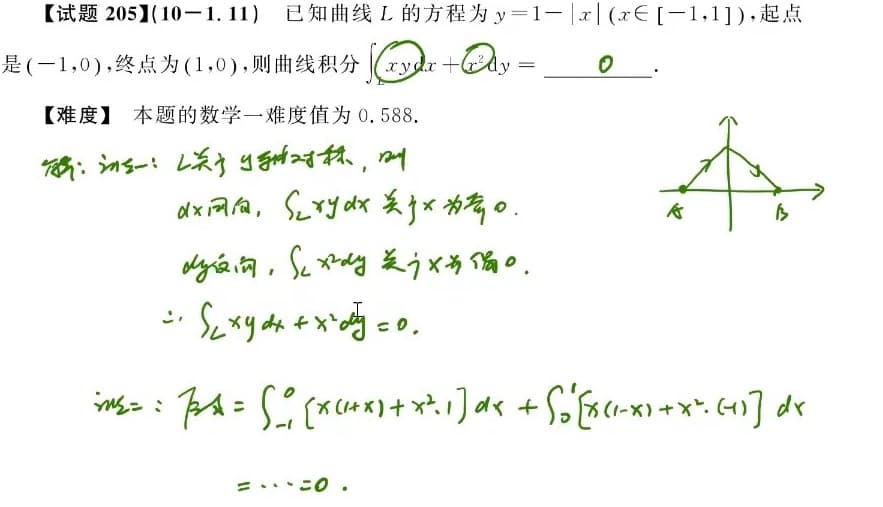 【试题 205】(10-1.11) 已知曲线 L 的方程为 y=1-|x| (x∈[-1,1]),起点
是(-1,0),终点为(1,0),则曲线积分∫_L xydx+x²dy= 0 .
【难度】 本题的数学一难度值为 0.588.
解: 法一: L关于 y轴对称, 则
dx同向, ∫_L xydx 关于x为奇0.
dy反向, ∫_L x²dy 关于x为偶0.
∴ ∫_L xydx + x²dy = 0.
A B
法二: 原式 = ∫_{-1}^{0} [x(1+x)+x²·1]dx + ∫_0^1 [x(1-x)+x²·(-1)] dx
= ··· = 0 .